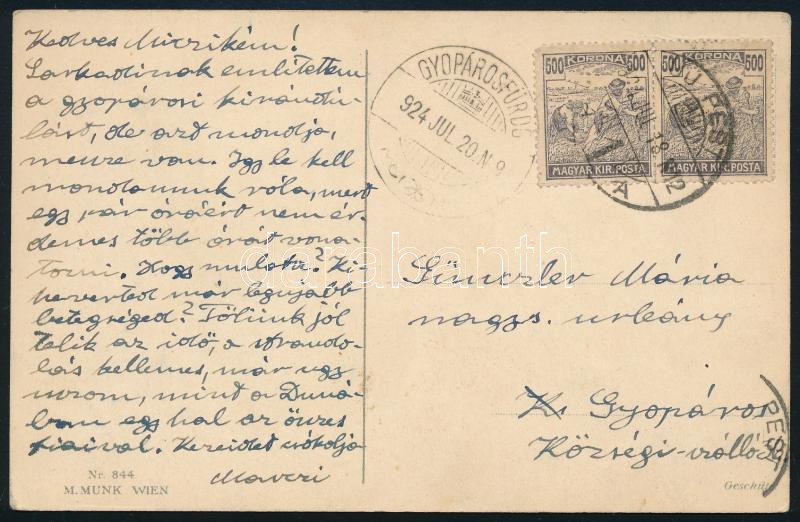 Kedves Miczikém!
Sarkadinak említettem
a gyopárosi kirándu-
lást, de azt mondja,
messze van. Igy le kell
mondanunk róla, mert
egy pár óráért nem ér-
demes több órát vona-
tozni. Hogy mulatsz? Ki-
heverted már legujabb
betegséged? Tőlünk jól
telik az idő, a strando-
lás kellemes, már ugy
uszom, mint a Duná-
ban egy hal az összes
fiaival. Kezeidet csókolja
Nr. 844
M. MUNK WIEN
GYOPÁROSFÜRDŐ
924 JUL 20. N 9
500 KORONA 500
MAGYAR KIR. POSTA
KORONA 500
MAGYAR KIR. POSTA
Mária
nagys. urleány
Gyopáros
Községi-
Geschüt
darabanth